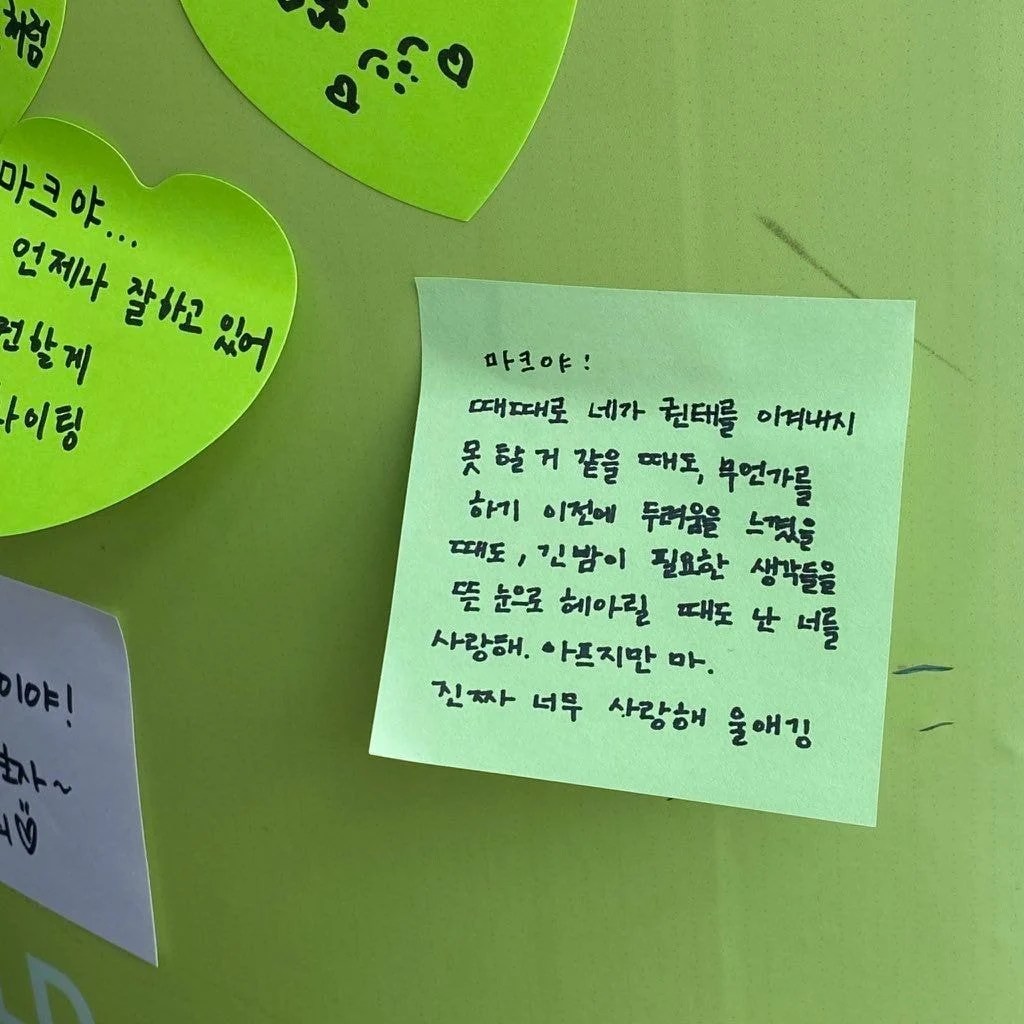 처럼
마크야...
언제나 잘하고 있어
할게
이팅
마크야!
때때로 네가 권태를 이겨내시
못 할 거 같을 때도, 무언가를
하기 이전에 두려움을 느꼈을
때도, 긴 밤이 필요한 생각들을
뜬 눈으로 헤아릴 때도 난 너를
사랑해. 아프지만 마.
진짜 너무 사랑해 울애깅
이야!
자~